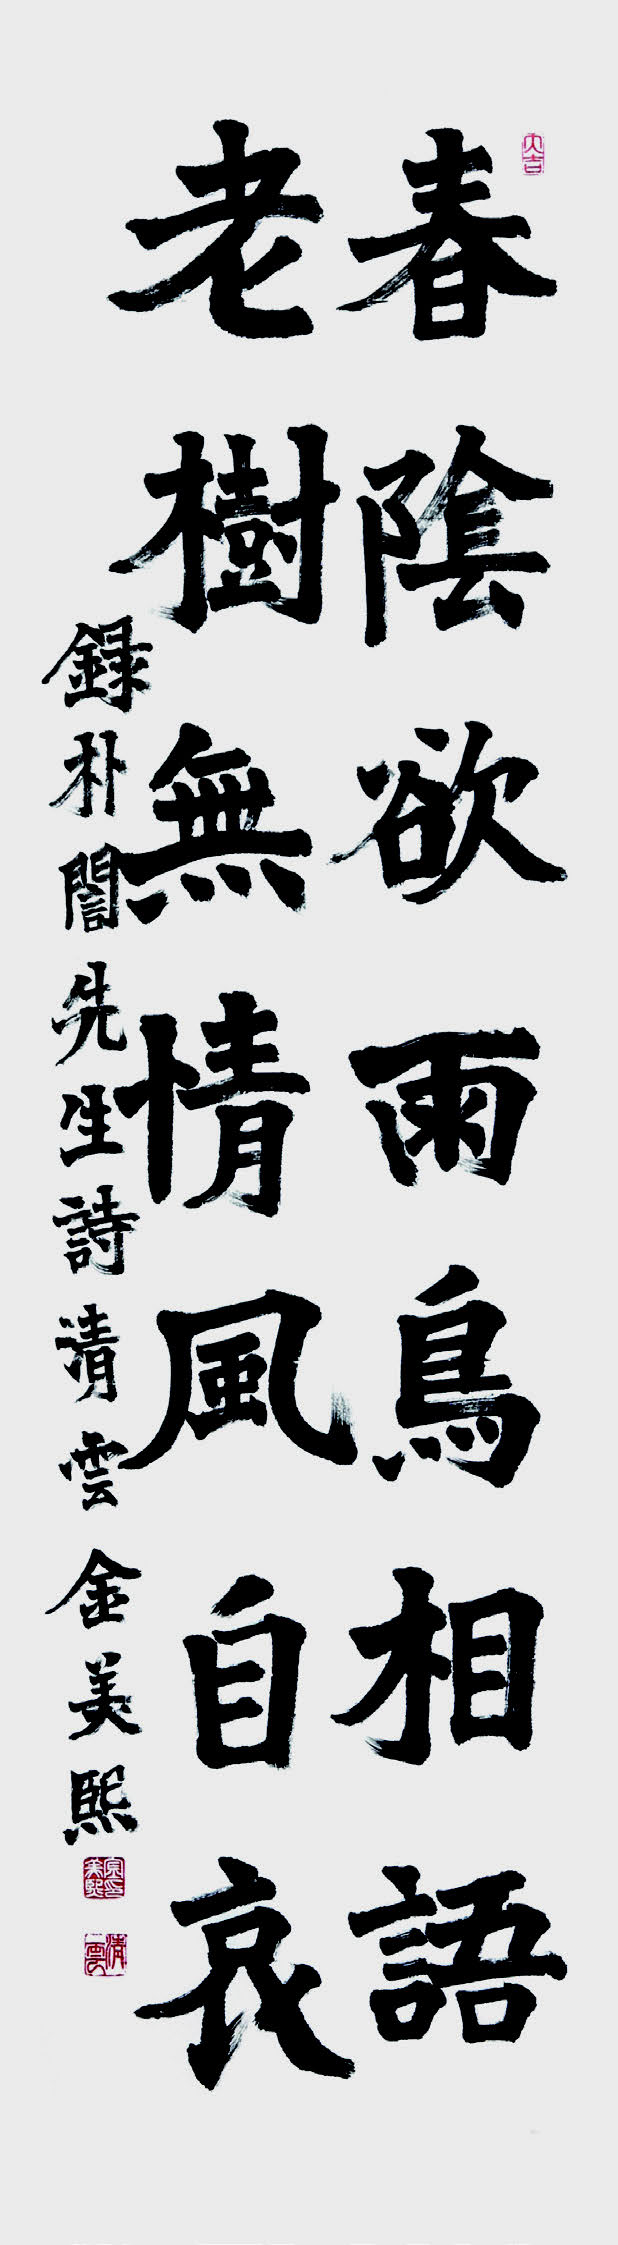 大吉
春陰欲雨鳥相語
老樹無情風自哀
錄朴誾先生詩清雲金美熙
美熙
清雲